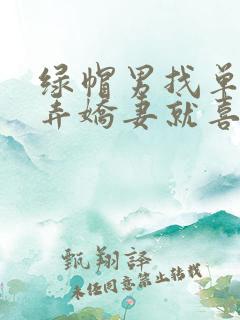 绿帽男找单
弄嬌妻就喜
甄翔譯
未经同意禁止转载